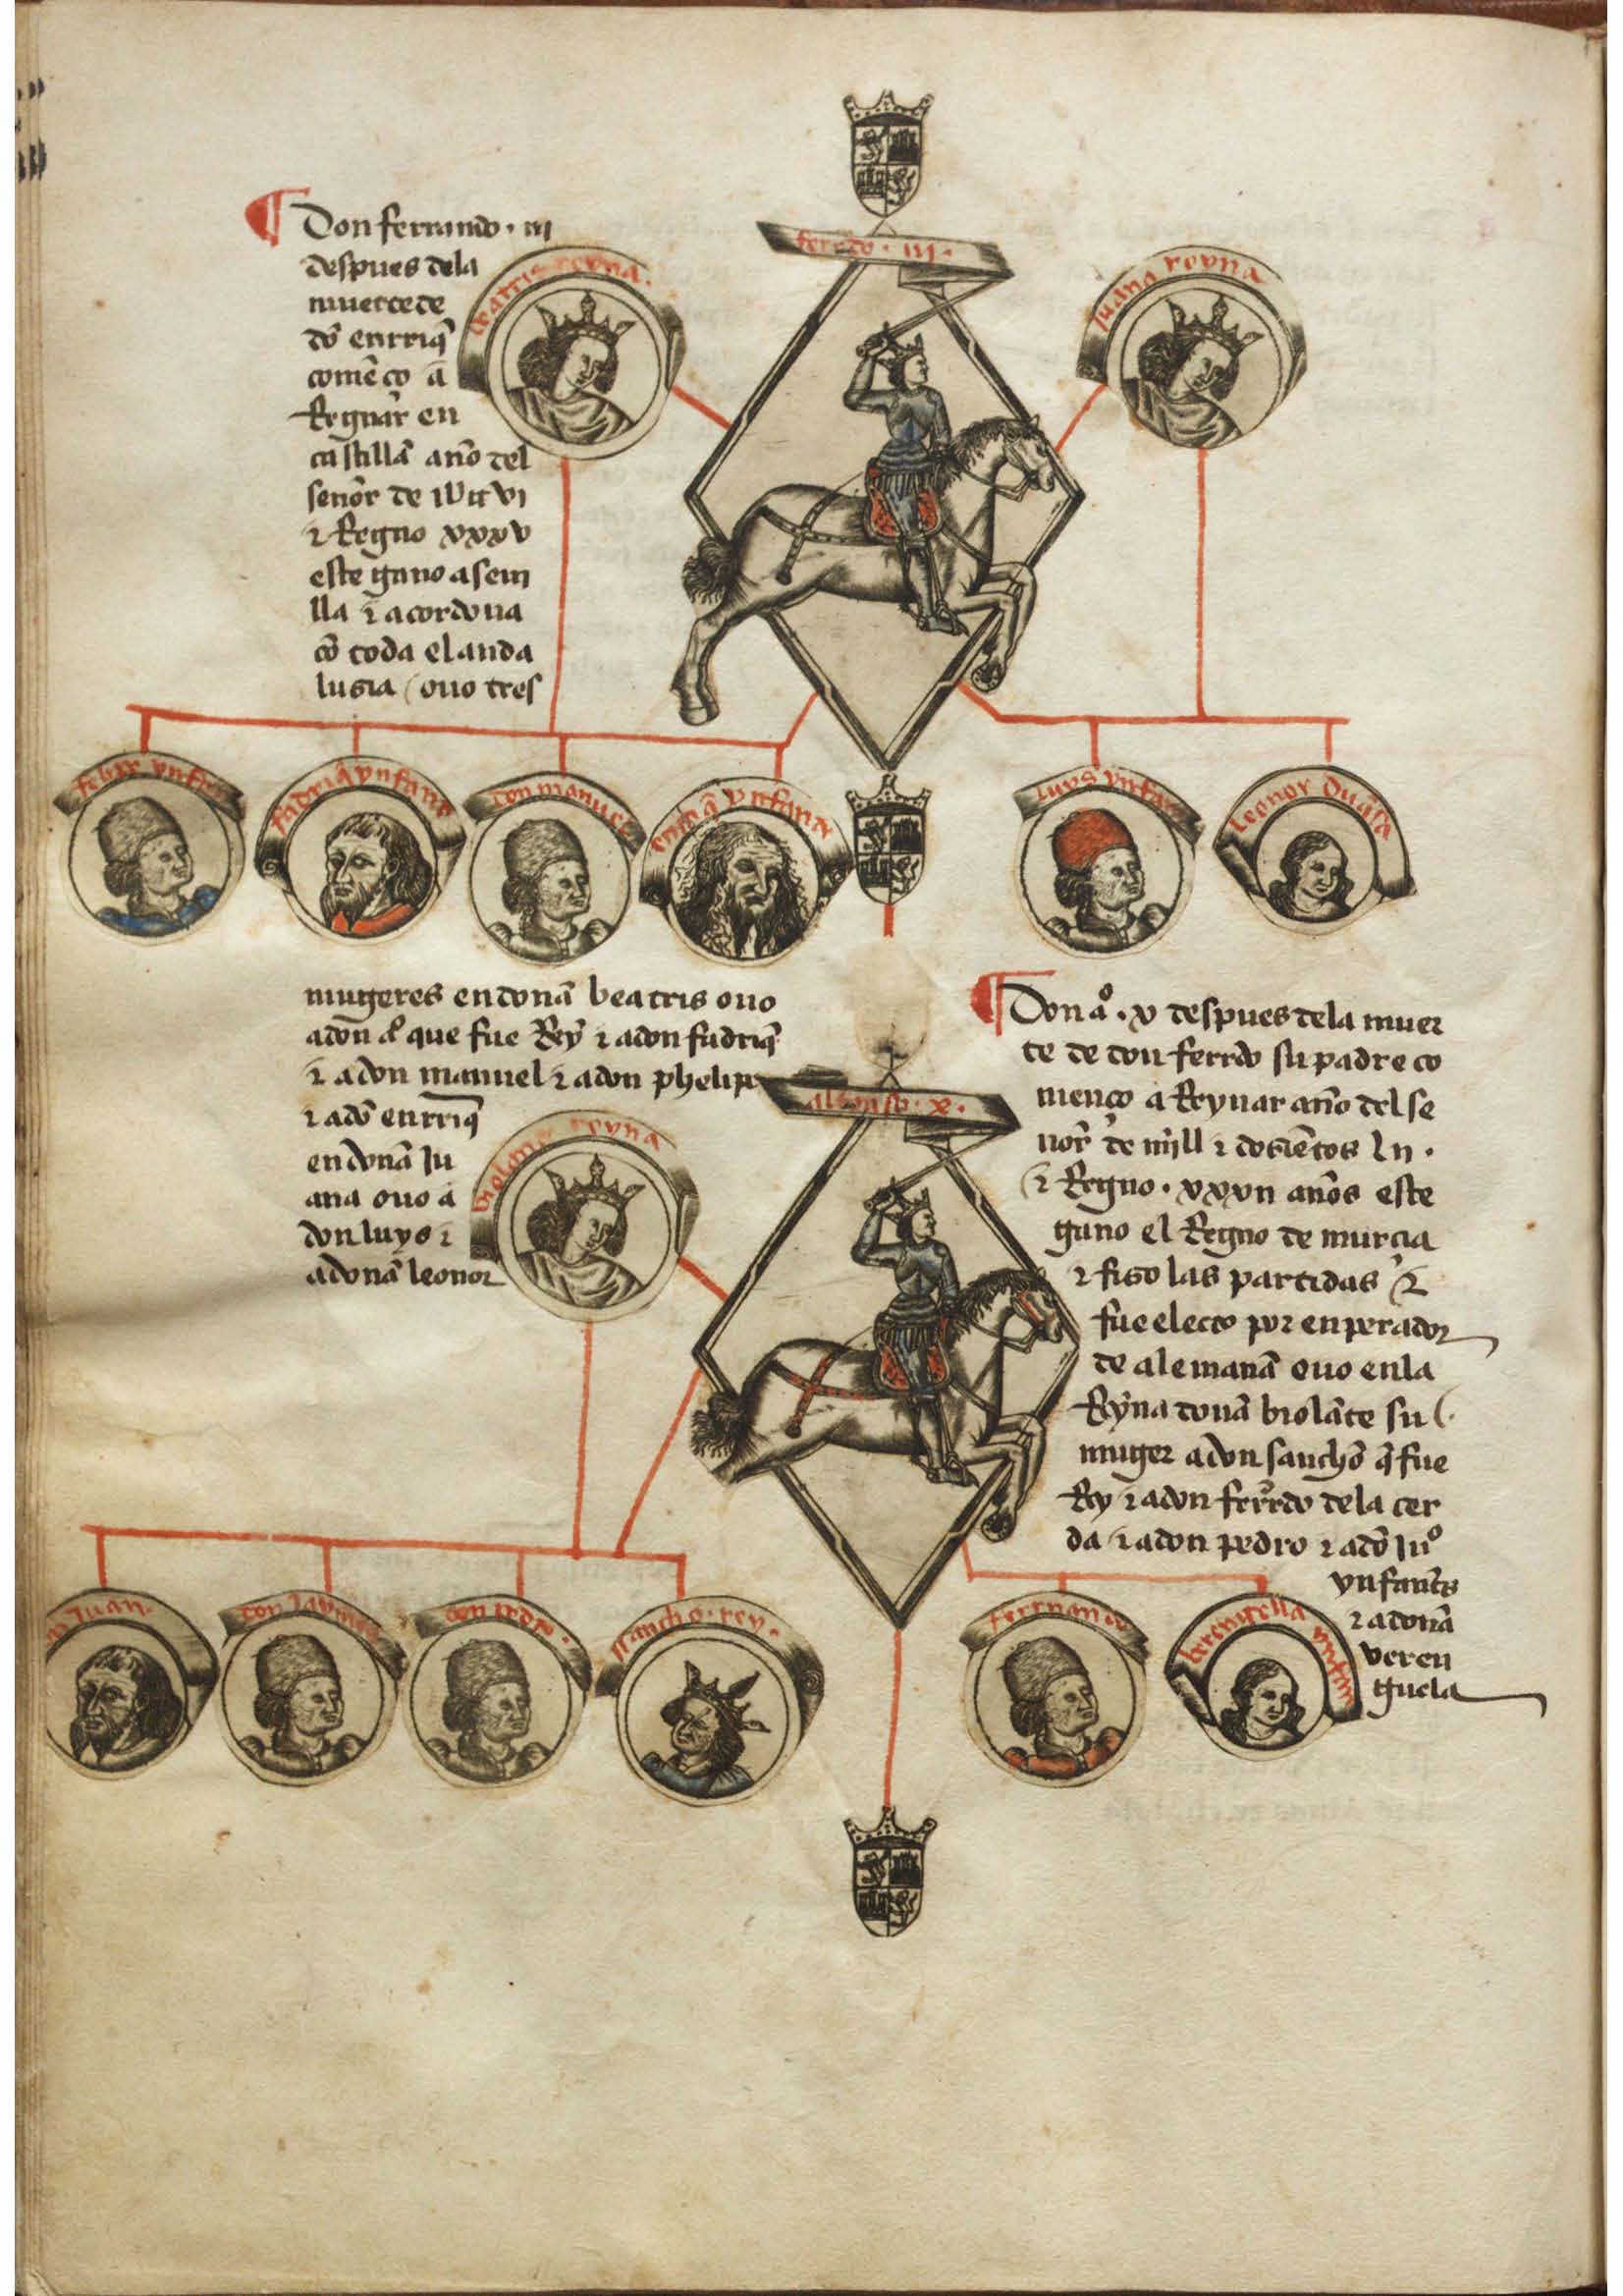 Don ferrando · iii
despues dela
muerte de
dõ enrriq̃
comẽco a
Regnar en
castilla año del
señor de
⁊ Regno xxxv
este gano a seui
lla ⁊ a cordoua
cõ toda el anda
lusia ouo tres
beatris reyna
ferrdo · iii ·
juana reyna
felipe ynfante
fadriq̃ ynfante
don manuel
enrriq̃ ynfante
luys ynfante
leonor
mugeres en doña beatris ouo
a don aº que fue Rey ⁊ a don fadriq̃
⁊ a don manuel ⁊ a don phelipe
⁊ a dõ enrriq̃
en doña Ju
ana ouo a
don luys ⁊
a doña leonor
violante reyna
alfonso · x ·
Don aº · x despues dela muer
te de don ferrdo su padre co
menço a Reynar año del se
ñor de mjll ⁊ dosiẽtos lii ·
⁊ Regno · xxxii años este
gano el Regno de murcia
⁊ fiso las partidas ⁊
fue electo por enperador
de alemaña ouo enla
Reyna doña violãte su
muger a don sancho q̃ fue
Rey ⁊ a don ferrdo dela cer
da ⁊ a don pedro ⁊ a dõ Juº
ynfantes
⁊ a doña
veren
guela
Juan
don Jaymes
don pedro ·
sancho · rey ·
fernando
berenguella ynfante